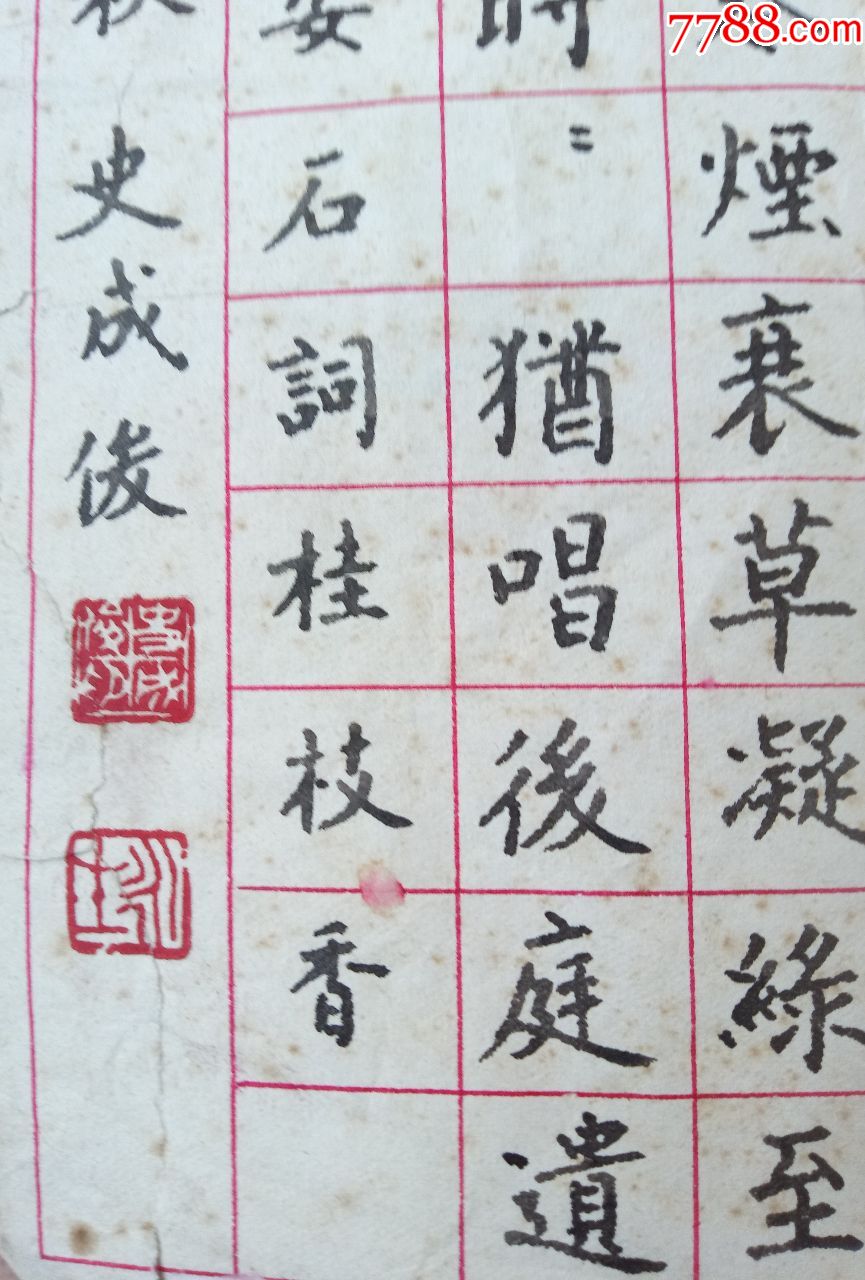 7788.com
煙衰草凝綠至
時〻猶唱後庭遺
安石詞桂枝香
秋 史成俊